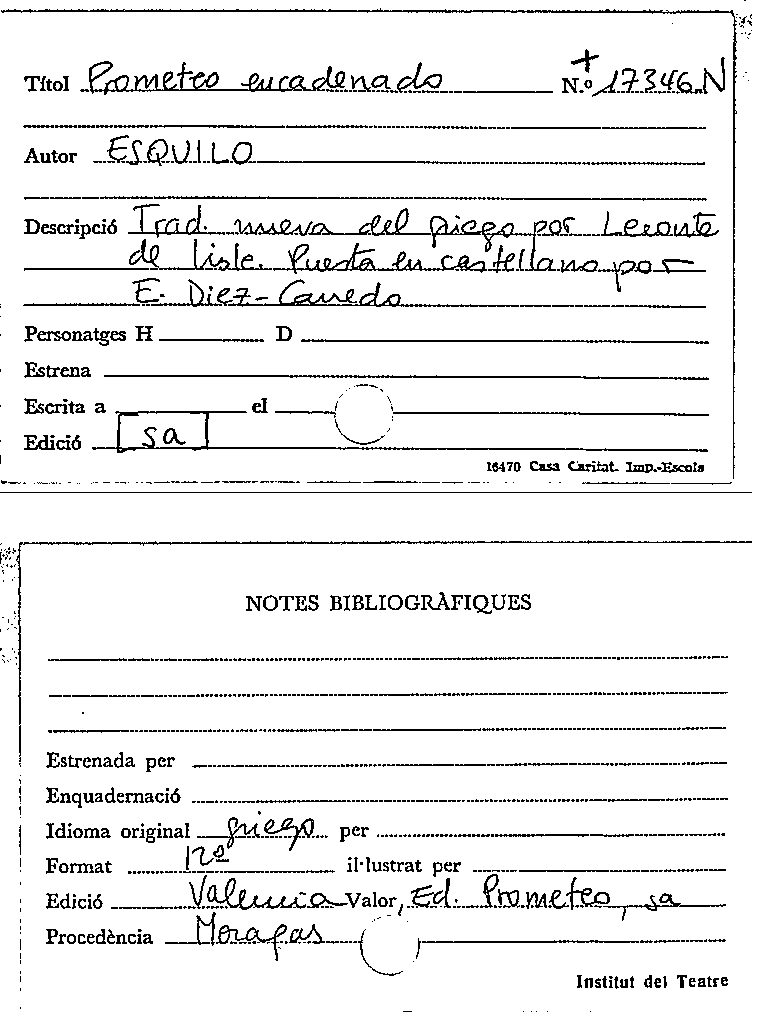 Títol Prometeo encadenado N.º 17346-N
+
Autor ESQUILO
Descripció Trad. nueva del griego por Leconte
de Lisle. Puesta en castellano por
E. Diez-Canedo
Personatges H D
Estrena
Escrita a el
Edició sa
16470 Casa Caritat. Imp.-Escola
NOTES BIBLIOGRÀFIQUES
Estrenada per
Enquadernació
Idioma original griego per
Format 12º il·lustrat per
Edició Valencia Valor, Ed. Prometeo, sa
Procedència Moragas
Institut del Teatre